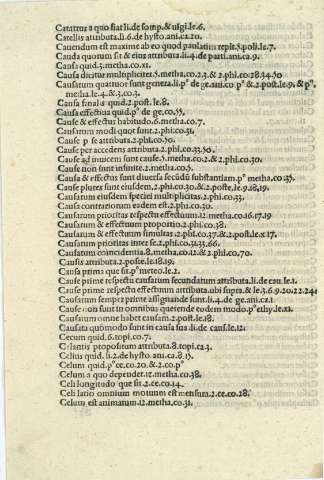 Catarrus a quo fiat li.de somp. & uigi.le.6.
Catellis attributa.li.6 de hysto.ani.ca.20.
Cauendum est maxime ab eo quod paulatim repit.5.poli.le.7.
Cauda quorum sit & eius attributa.li.4.de parti.ani.ca.9.
Causa quid.5.metha.co.11.
Causa dicitur multipliciter.5.metha.co.2.3.& 2.phi.co.28.34.50
Causarum quattuor sunt genera.li.pº de ge.ani.co.pº & 2.post.le.9.& pº.
metha.le.4.& 3.co.3.
Causa finalis quid.2.post.le.8.
Causa effectiua quid.pº de ge.co.55.
Causa & effectus habitudo.6.metha.co.7.
Causarum modi quot sunt.2.phi.co.31.
Cause p se attributa.2.phi.co.50.
Cause per accedens attributa.2.phi.co.33.50.
Cause ad inuicem sunt cause.5.metha.co.2.& 2.phi.co.30.
Cause non sunt infinite.2.metha.co.5.
Causa & effectus sunt diuersa secūdū substantiam.pº metha.co.35.
Cause plures sunt eiusdem.2.phi.co.30.& 2.poste.le.9.18.19.
Causarum eiusdem speciei multiplicitas.2.phi.co.33.
Causa contrariorum eadem est.2.phi.co.30.
Causarum prioritas respectu effectuum.12.metha.co.16.17.19
Causarum & effectuum proportio.2.phi.co.38.
Causarum & effectuum simultas.2.phi.co.37.& 2.post.le.x.17.
Causarum prioritas inter se.2.phi.co.31.33.66.
Causarum coincidentia.8.metha.co.12.& 2.phi.co.70.
Causis attributa.2.poste.le.18.19.
Causa prima que sit.pº meteo.le.2.
Cause prime respectu causarum secundarum attributa.li.de cau.le.1.
Cause prime respectu effectuum attributa.ubi supra.& le.3.6.9.20.22.24.
Causarum semper prime assignande sunt.li.4.de ge.ani.ca.1.
Cause non sunt in omnibus querende eodem modo.pº ethy.le.x1.
Causarum omne habet causam.2.post.le.18.
Causata quomodo sunt in causa sua.li.de cau.le.12.
Cecum quid.6.topi.co.7.
Celantis propositum attributa.8.topi.ca.3.
Celius quid.li.2.de hysto.ani.ca.8.13.
Celum quid.pº ce.co.20.& 2.co.pº
Celum a quo dependet.12.metha.co.38.
Celi longitudo que sit.2.ce.co.14.
Celi latio omnium motuum est mensura.2.ce.co.28.
Celum est animatum.12.metha.co.31.